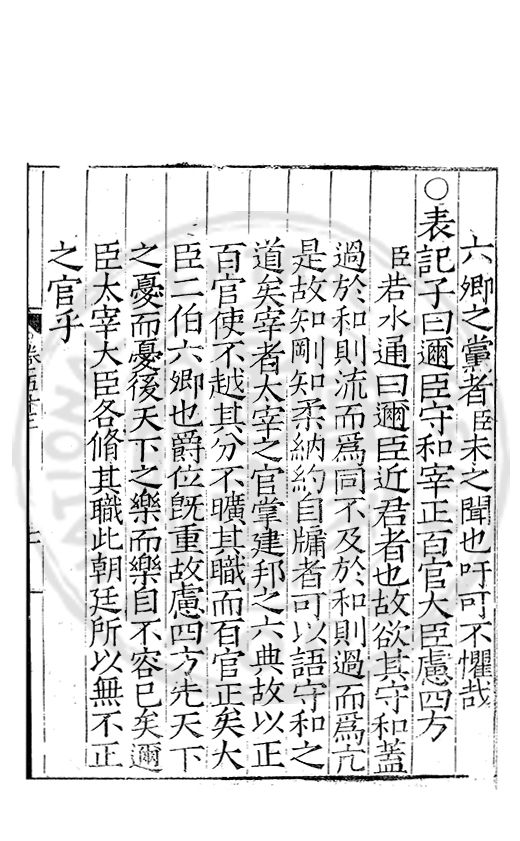 六卿之黨者臣未之聞也吁可不懼哉
○表記子曰邇臣守和宰正百官大臣慮四方
臣若水通曰邇臣近君者也故欲其守和蓋
過於和則流而爲同不及於和則過而爲亢
是故知剛知柔納約自牖者可以語守和之
道矣宰者太宰之官掌建邦之六典故以正
百官使不越其分不曠其職而百官正矣大
臣二伯六卿也爵位旣重故慮四方先天下
之憂而憂後天下之樂而樂自不容已矣邇
臣太宰大臣各脩其職此朝廷所以無不正
之官乎